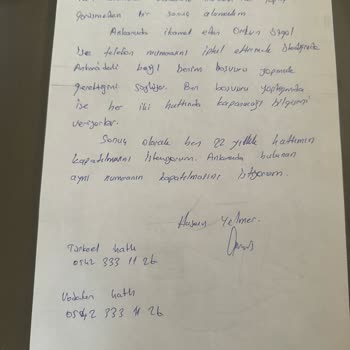 görüşmeden bir sonuç alamadım
Ankarada ikamet eden Orkun
ise telefon numarasını iptal ettirmek istediğinde
Ankara'daki bayi benim başvuru yapmam
gerektiğini söylüyor. Ben başvuru yaptığımda
ise her iki hattında kapanacağı bilgisini
veriyorlar.
Sonuç olarak ben 22 yıllık hattımın
kapatılmasını istemiyorum. Ankarada bulunan
aynı numaranın kapatılmasını istiyorum.
Turkcell hattı
0542 333 11 26
Vodafon hattı
0542 333 11 26